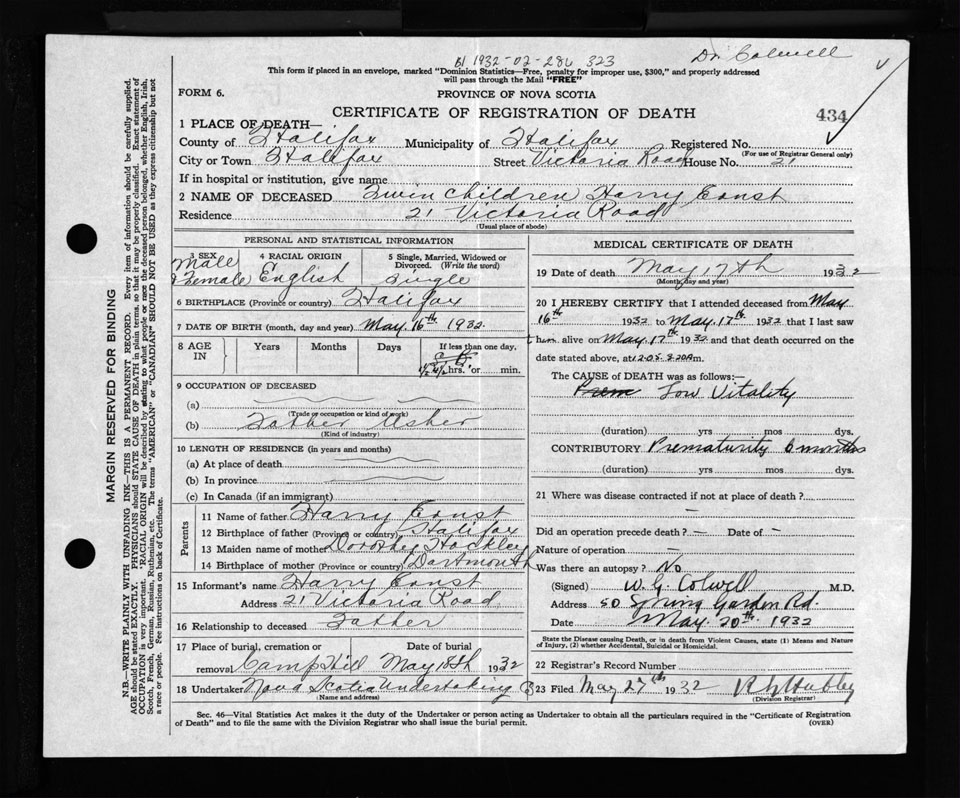 B1 1932-02-286 323
Dr. Colwell
This form if placed in an envelope, marked "Dominion Statistics—Free, penalty for improper use, $300," and properly addressed
will pass through the Mail "FREE"
FORM 6.
PROVINCE OF NOVA SCOTIA
CERTIFICATE OF REGISTRATION OF DEATH
434
1 PLACE OF DEATH—
County of Halifax Municipality of Halifax Registered No.
(For use of Registrar General only)
City or Town Halifax Street Victoria Road House No. 21
If in hospital or institution, give name
2 NAME OF DECEASED Twin Children Harry Ernst
Residence 21 Victoria Road
(Usual place of abode)
PERSONAL AND STATISTICAL INFORMATION
3 SEX Male Female
4 RACIAL ORIGIN English
5 Single, Married, Widowed or Divorced. (Write the word) Single
6 BIRTHPLACE (Province or country) Halifax
7 DATE OF BIRTH (month, day and year) May. 16th 1932
8 AGE IN Years Months Days If less than one day, hrs. or min.
9 OCCUPATION OF DECEASED
(a)
(Trade or occupation or kind of work)
(b) Father Usher
(Kind of industry)
10 LENGTH OF RESIDENCE (in years and months)
(a) At place of death
(b) In province
(c) In Canada (if an immigrant)
Parents
11 Name of father Harry Ernst
12 Birthplace of father (Province or country) Halifax
13 Maiden name of mother Dorothy Hockley
14 Birthplace of mother (Province or country) Dartmouth
15 Informant's name Harry Ernst
Address 21 Victoria Road
16 Relationship to deceased Father
17 Place of burial, cremation or removal Camp Hill Date of burial May 18th 1932
18 Undertaker Nova Scotia Undertaking Co
(Name and address)
MEDICAL CERTIFICATE OF DEATH
19 Date of death May 17th 1932
(Month, day and year)
20 I HEREBY CERTIFY that I attended deceased from May
16th 1932 to May. 17th 1932 that I last saw
them alive on May. 17th 1932 and that death occurred on the
date stated above, at 12.05 3.20 A m.
The CAUSE of DEATH was as follows:—
Prem Low Vitality
(duration) yrs mos dys.
CONTRIBUTORY Prematurity 6 months
(duration) yrs mos dys.
21 Where was disease contracted if not at place of death? —
Did an operation precede death? — Date of —
Nature of operation —
Was there an autopsy? No
(Signed) W. G. Colwell M.D.
Address 50 Spring Garden Rd.
Date May. 20th 1932
State the Disease causing Death, or in death from Violent Causes, state (1) Means and Nature
of Injury, (2) whether Accidental, Suicidal or Homicidal.
22 Registrar's Record Number
23 Filed May 27th 1932 R Hubley
(Division Registrar)
Sec. 46—Vital Statistics Act makes it the duty of the Undertaker or person acting as Undertaker to obtain all the particulars required in the "Certificate of Registration
of Death" and to file the same with the Division Registrar who shall issue the burial permit.
(OVER)
MARGIN RESERVED FOR BINDING
N.B.—WRITE PLAINLY WITH UNFADING INK—THIS IS A PERMANENT RECORD. Every item of information should be carefully supplied.
AGE should be stated EXACTLY. PHYSICIANS should STATE CAUSE OF DEATH in plain terms, so that it may be properly classified. Exact statement of
OCCUPATION is very important. "RACIAL ORIGIN" will be described by stating to what people or race the deceased person belonged, whether English, Irish,
Scotch, French, German, Russian, Ruthenian, etc. The terms "AMERICAN" or "CANADIAN" SHOULD NOT BE USED as they express citizenship but not
a race or people. See instructions on back of Certificate.